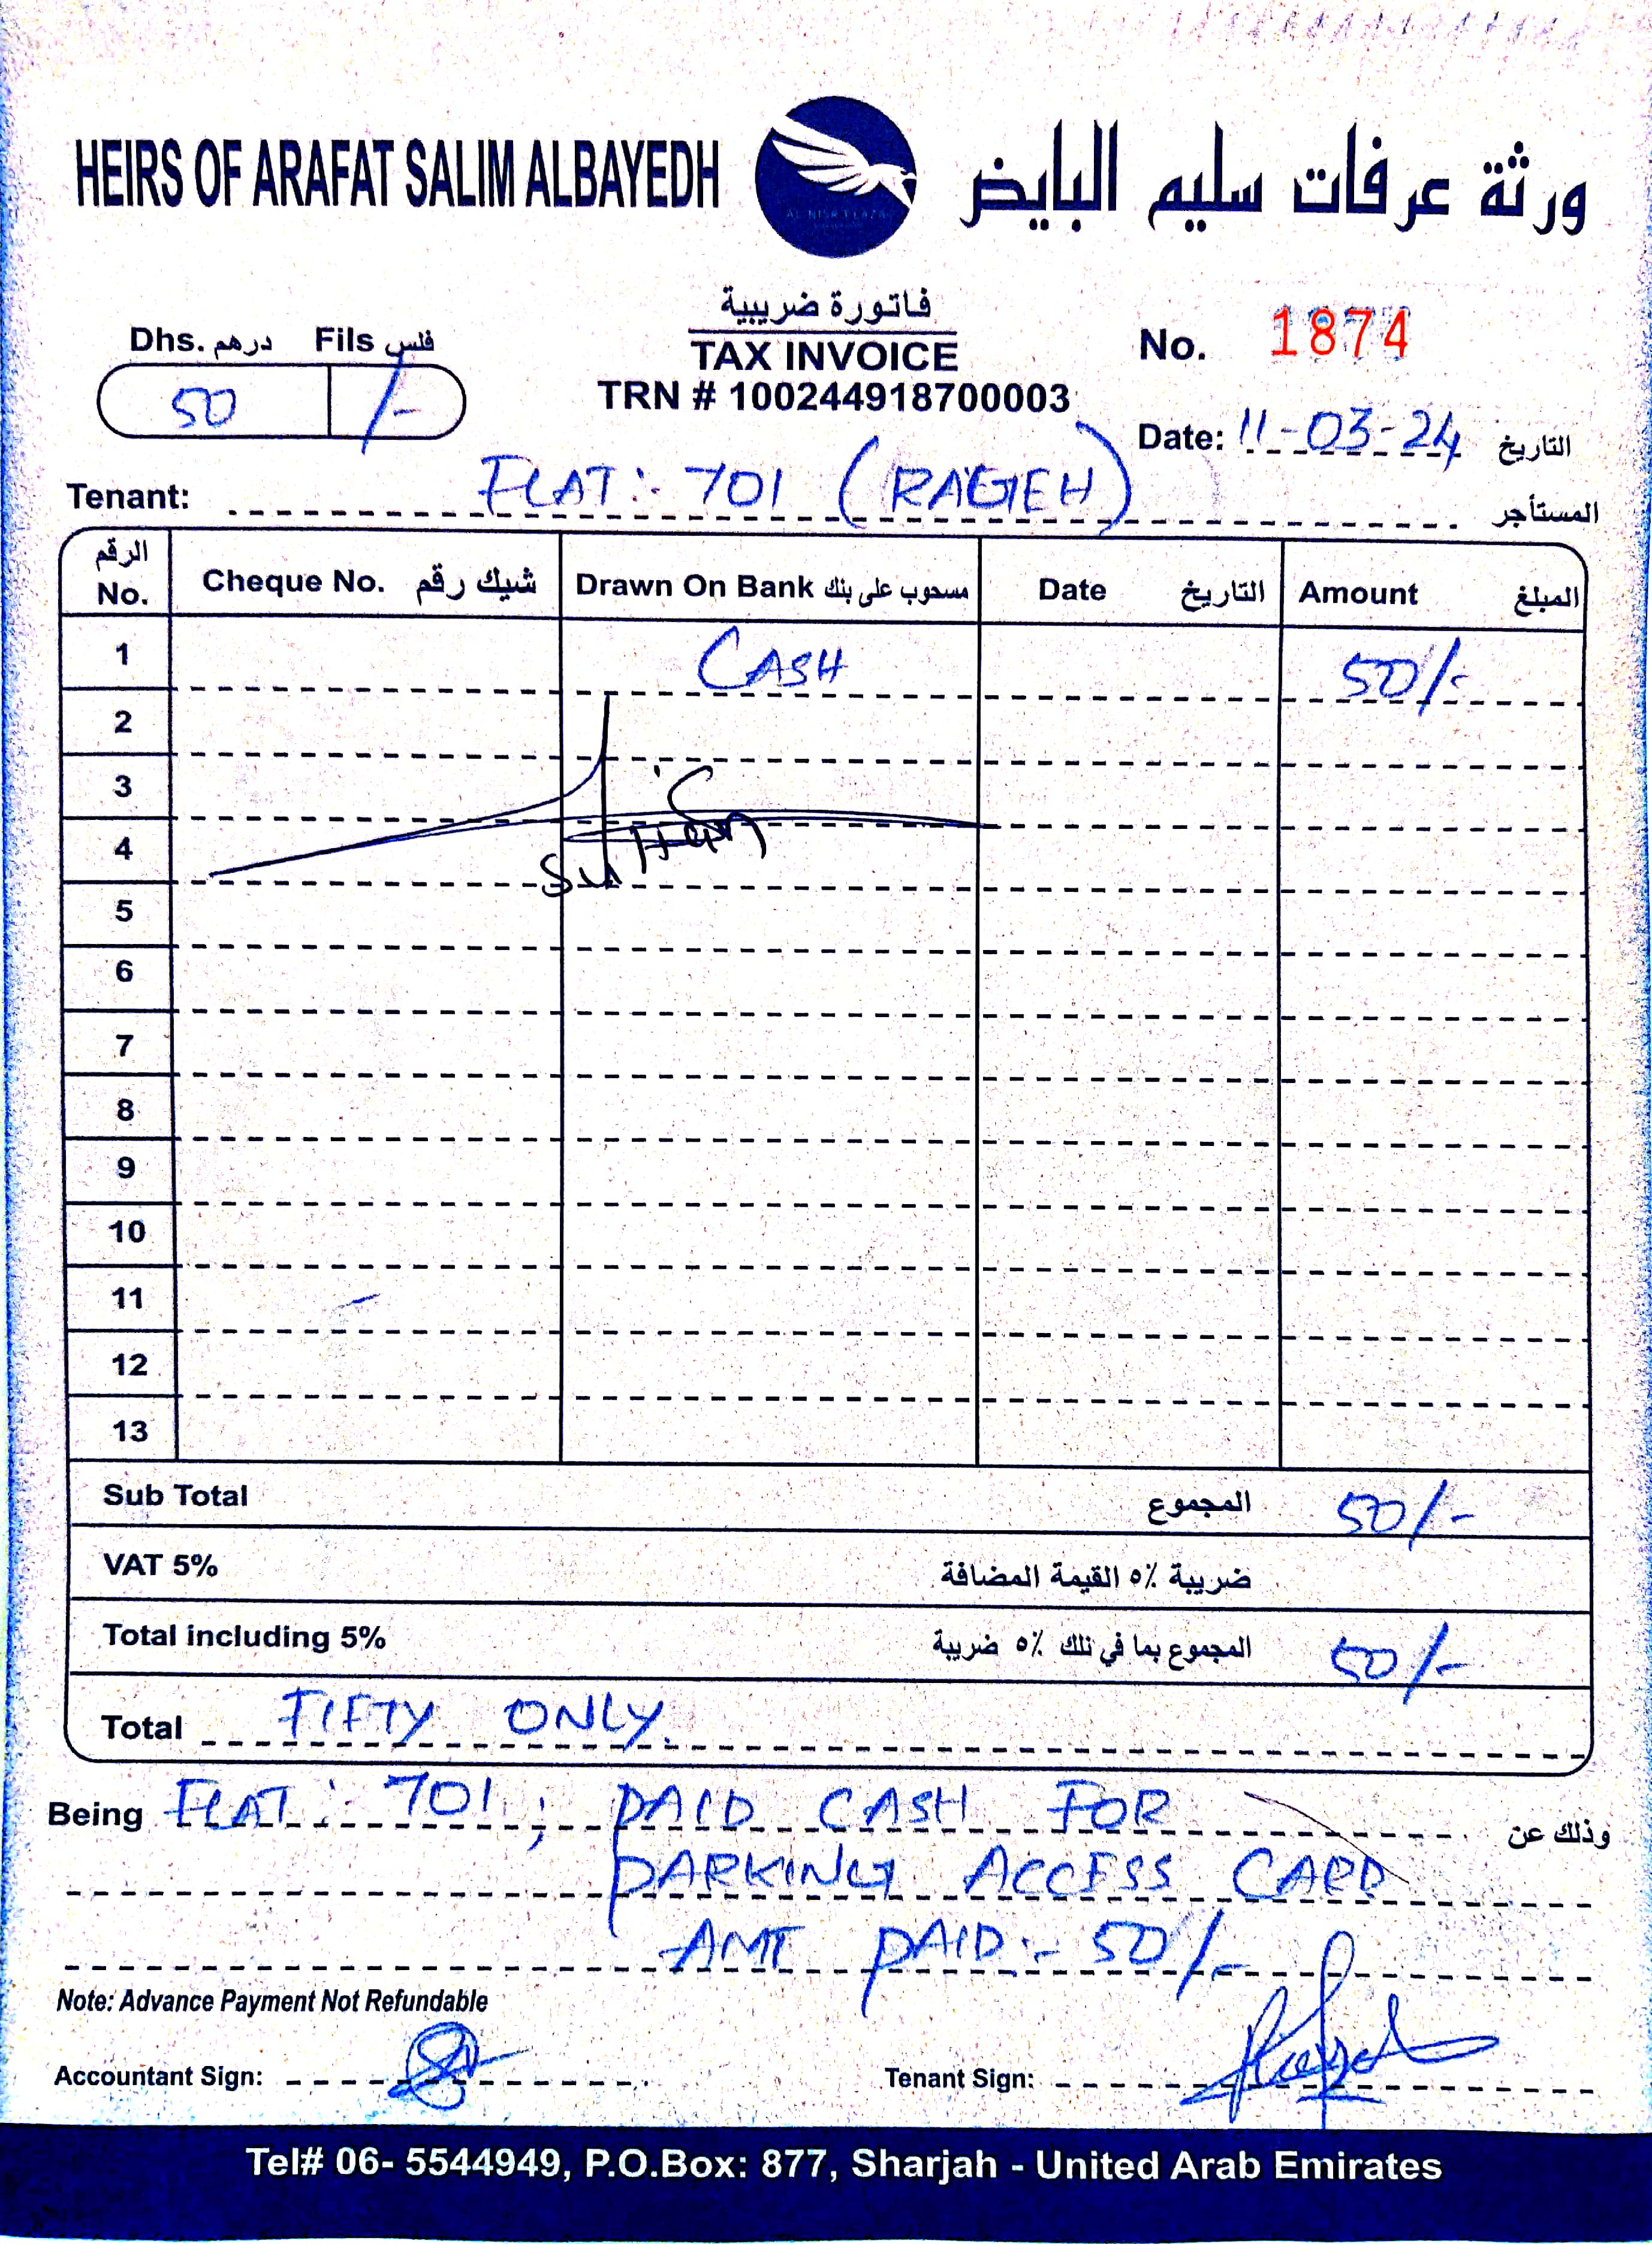 HEIRS OF ARAFAT SALIM ALBAYEDH
ورثة عرفات سليم البايض
AL NISR PLAZA
فاتورة ضريبية
TAX INVOICE
TRN # 100244918700003
Dhs. درهم Fils فلس
50 /-
No. 1874
Date: 11-03-24 التاريخ
Tenant: FLAT:- 701 (RAGEH) المستأجر
الرقم No. Cheque No. شيك رقم Drawn On Bank مسحوب على بنك Date التاريخ Amount المبلغ
1 CASH 50/-
2
3
4
5
6
7
8
9
10
11
12
13
Sub Total المجموع 50/-
VAT 5% ضريبة ٥٪ القيمة المضافة
Total including 5% المجموع بما في تلك ٥٪ ضريبة 50/-
Total FIFTY ONLY.
Being FLAT: 701; PAID CASH FOR وذلك عن
PARKING ACCESS CARD
AMT PAID:- 50/-
Note: Advance Payment Not Refundable
Accountant Sign:
Tenant Sign:
Tel# 06- 5544949, P.O.Box: 877, Sharjah - United Arab Emirates